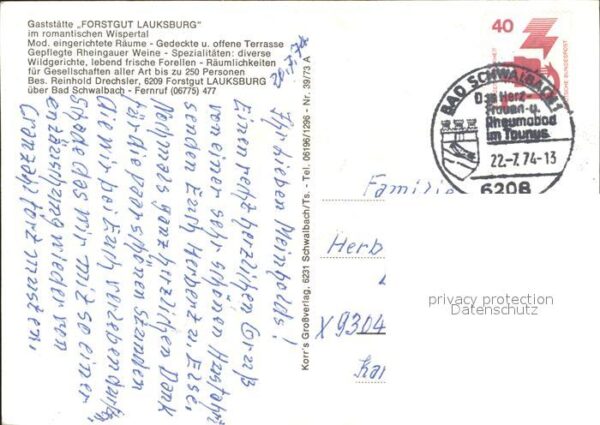 Gaststätte „FORSTGUT LAUKSBURG"
im romantischen Wispertal
Mod. eingerichtete Räume - Gedeckte u. offene Terrasse
Gepflegte Rheingauer Weine - Spezialitäten: diverse
Wildgerichte, lebend frische Forellen - Räumlichkeiten
für Gesellschaften aller Art bis zu 250 Personen
Bes. Reinhold Drechsler, 6209 Forstgut LAUKSBURG
über Bad Schwalbach - Fernruf (06775) 477
Ihr lieben Meinholds!
Einen recht herzlichen Gruß
von einer sehr schönen Ausfahrt
senden Euch Herbert u. Else.
Nochmals ganz herzlichen Dank
für die paar schönen Stunden
die wir bei Euch verleben durften,
Schade das wir mit so einer
enttäuschung wieder von
Cranzahl fort mussten.
Korr's Großverlag, 6231 Schwalbach/Ts. - Tel. 06196/1296 - Nr. 39/73 A
40
DEUTSCHE BUNDESPOST
BAD SCHWALBACH 1
Das Herz-
Frauen-u.
Rheumabad
im Taunus
22.-7.74-13
6208
Familie
Herb
X 9304
privacy protection
Datenschutz